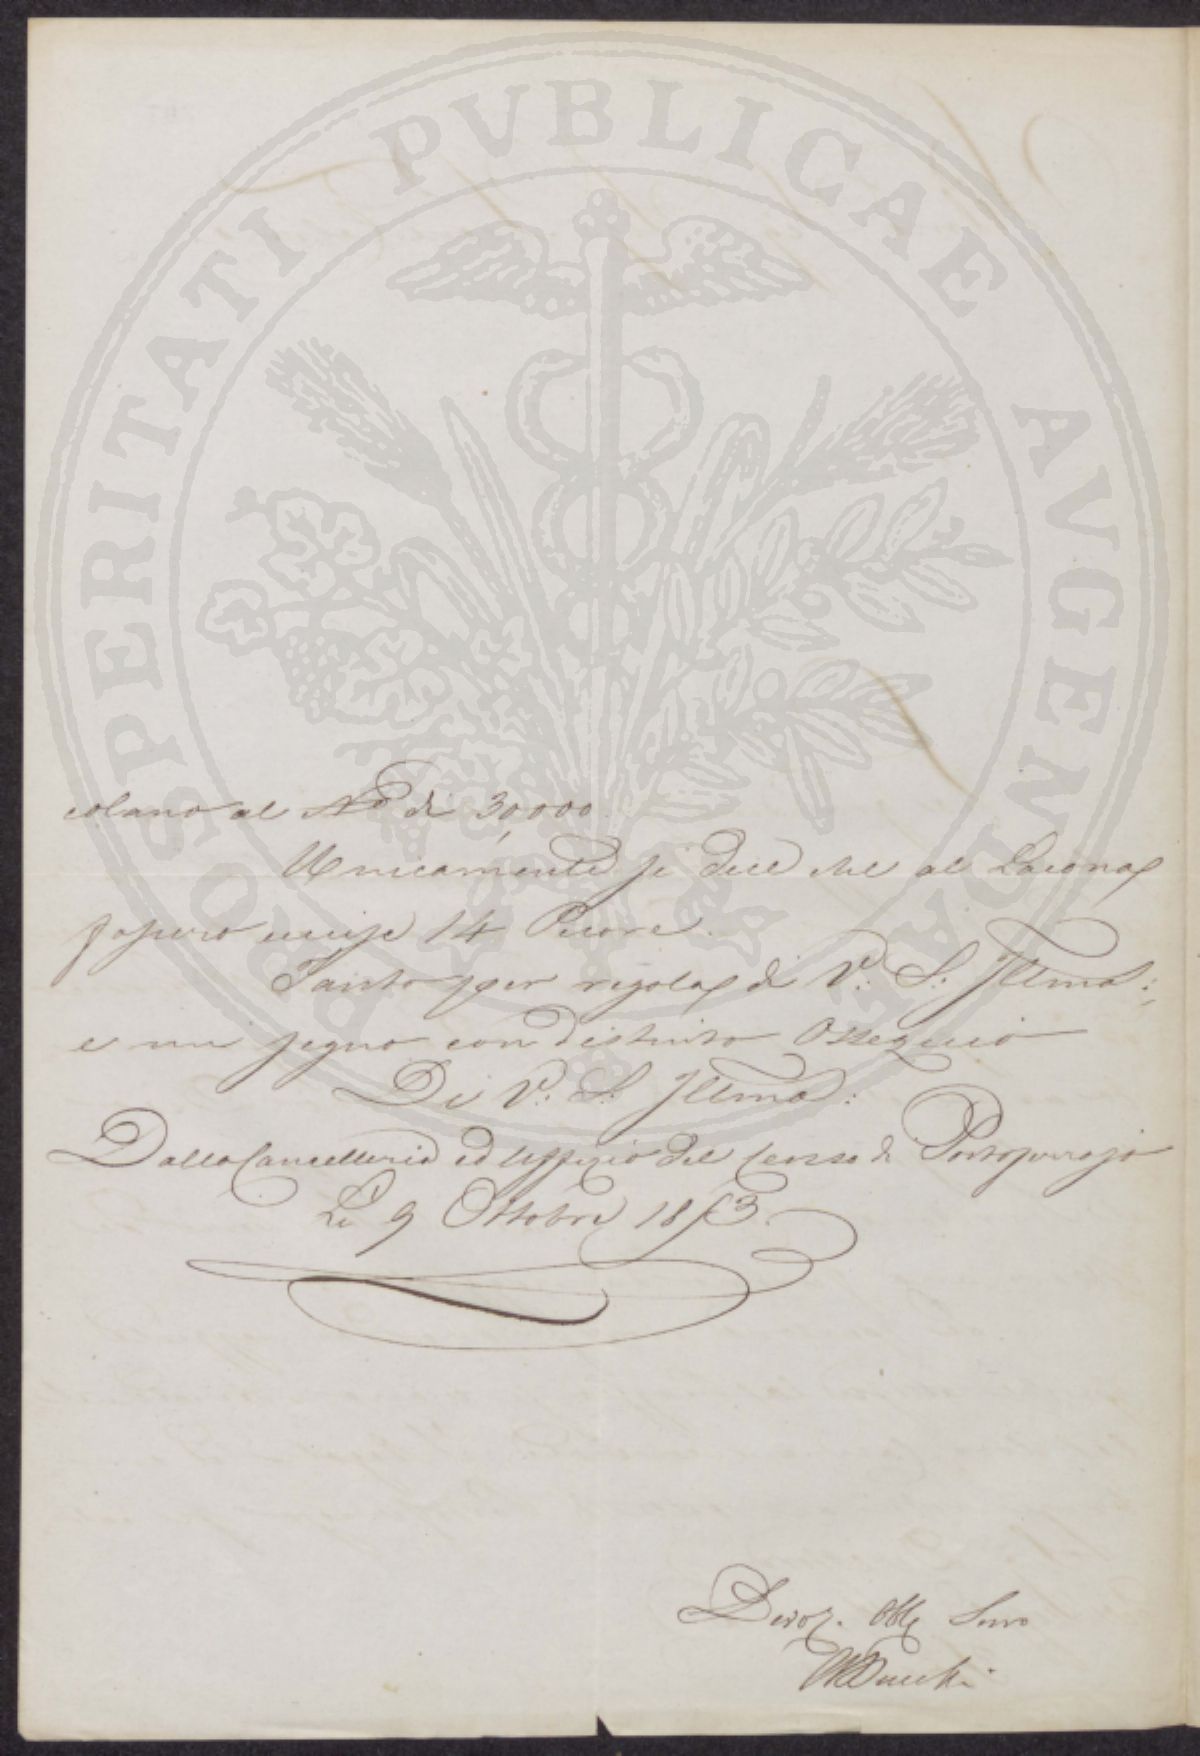 PROSPERITATI PVBLICAE AVGENDAE
colano al No di 30,000.
Unicamente si dice che al Lacona
furono uccise 14 Pecore.
Tanto per regola di V: S: Illma:
e mi segno con distinto Ossequio
Di V: S: Illma:
Dalla Cancelleria ed Uffizio del Censo di Portoferrajo
Li 9 Ottobre 1853.
Devot. Obbl Servo